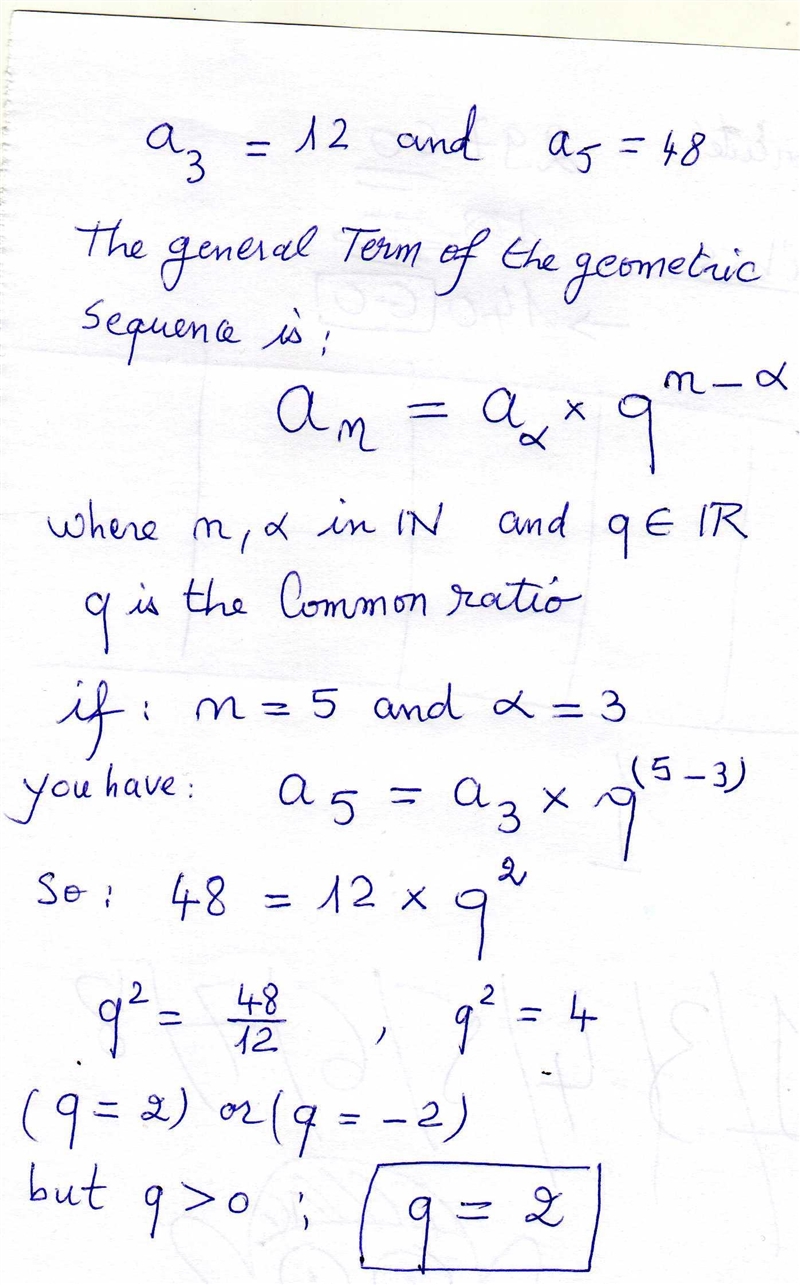 a₃ = 12 and a₅ = 48
The general Term of the geometric
sequence is:
aₙ = a_α × q^(n-α)
where n, α in ℕ and q ∈ ℝ
q is the Common ratio
if: n = 5 and α = 3
you have: a₅ = a₃ × q^(5-3)
So: 48 = 12 × q²
q² = 48/12 , q² = 4
(q = 2) or (q = -2)
but q > 0 ; q = 2